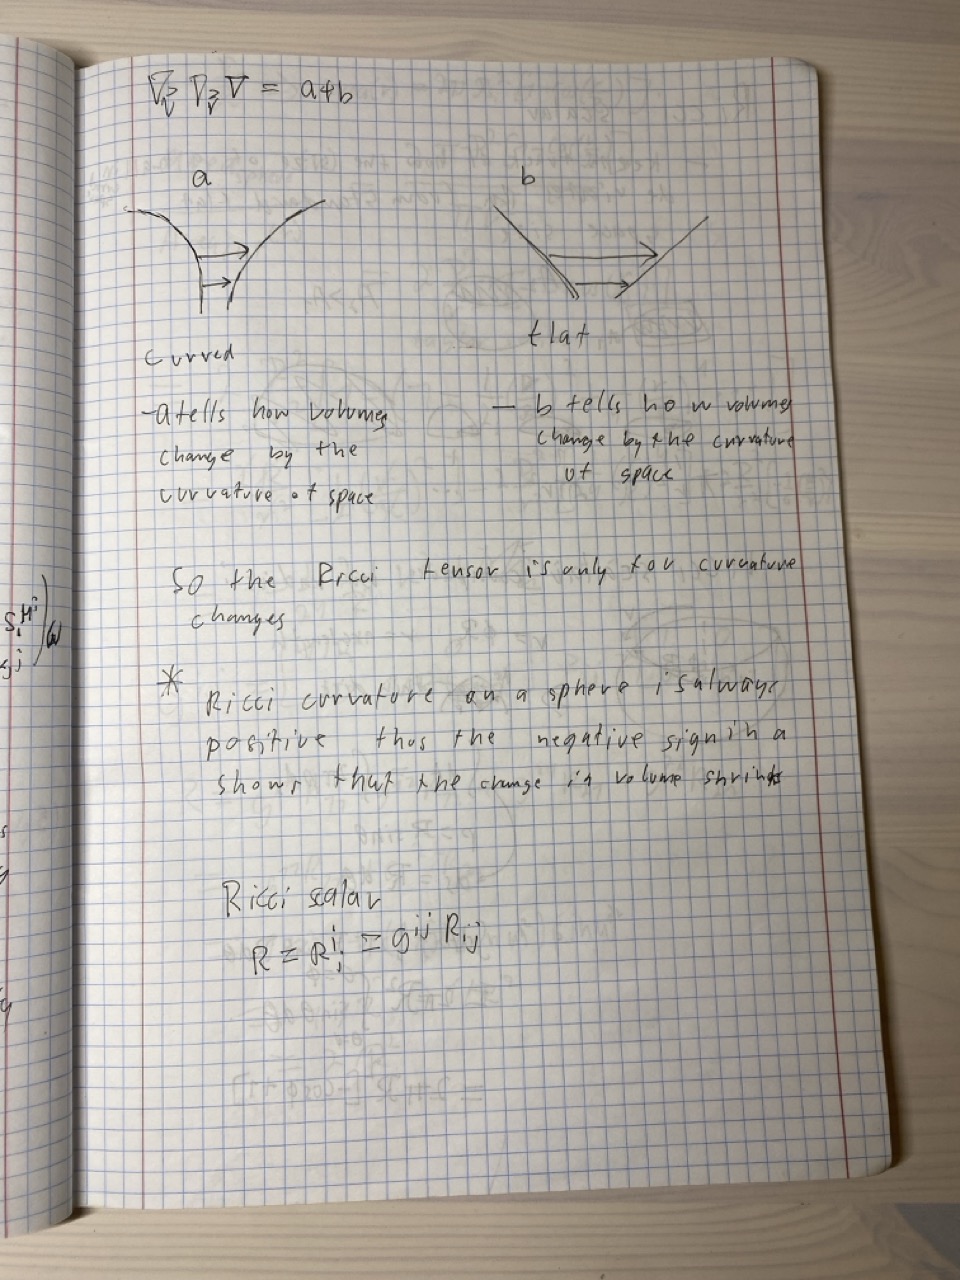 ∇_v⃗ ∇_v⃗ V = a+b
a
b
curved
flat
- a tells how volumes
change by the
curvature of space
- b tells how volumes
change by the curvature
of space
So the Ricci tensor is only for curvature
changes
* Ricci curvature on a sphere is always
positive thus the negative sign in a
shows that the change in volume shrinks
Ricci scalar
R = R^i_i = g^ij R_ij
S_i^Hi
g j
w